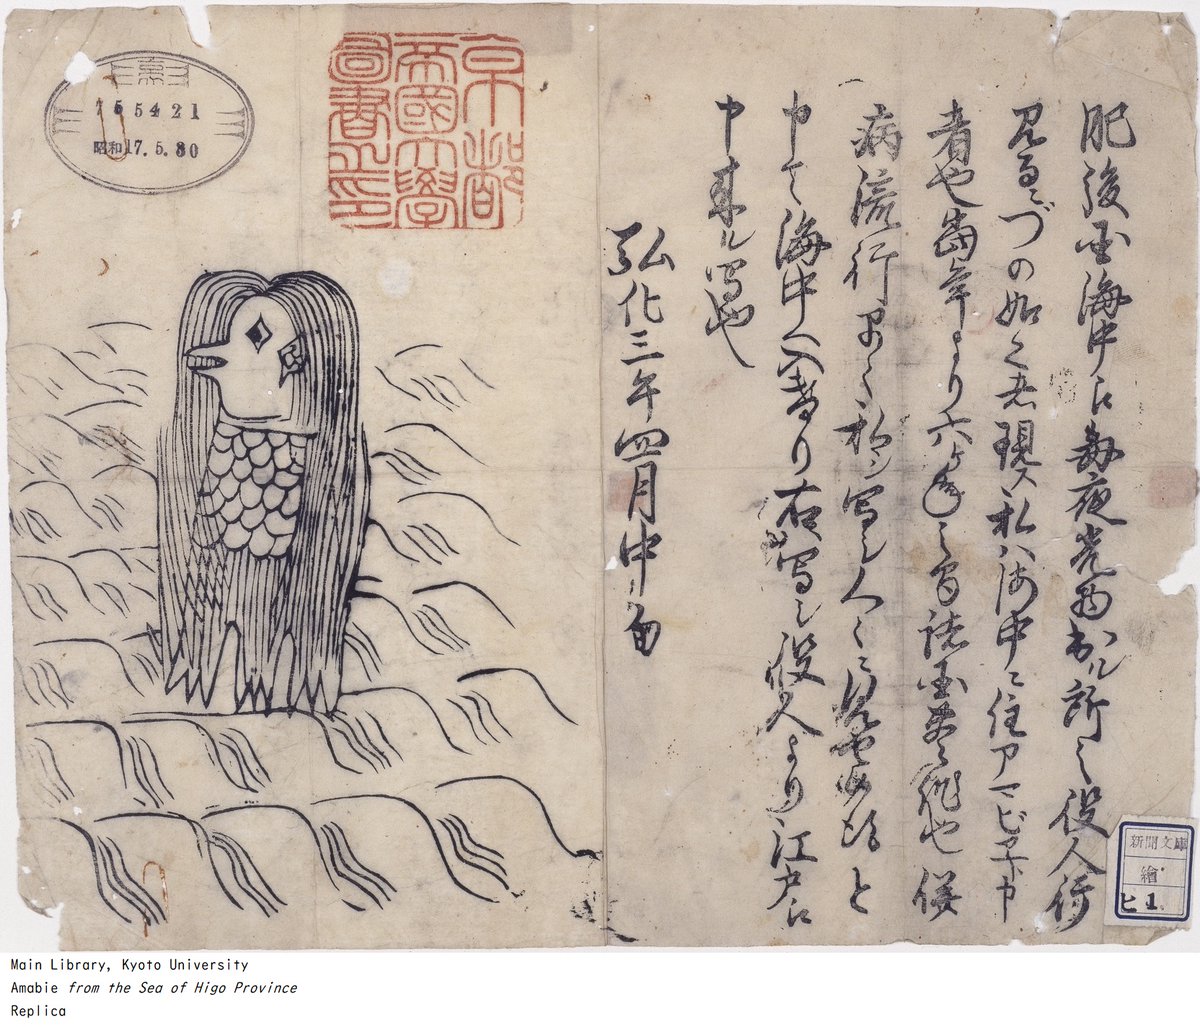 肥後国海中え毎夜光物出ル所之役人行
見るニづの如く者現ス私ハ海中ニ住アマビヱト申
者也當年より六ヶ年之間諸国豊作也併
病流行早々私ヲ写シ人々ニ見セ候得と
申て海中へ入けり右写シ役人より江戸え
申来ル写也
弘化三年四月中旬
京都
帝國大學
圖書之印
昭和17.5.30
新聞文庫
繪
ヒ1
Main Library, Kyoto University
Amabie from the Sea of Higo Province
Replica